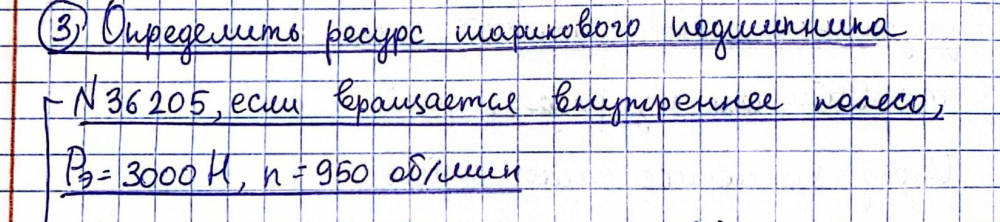 3) Определить ресурс шарикового подшипника
N 36205, если вращается внутреннее колесо,
Pэ = 3000 Н, n = 950 об/мин